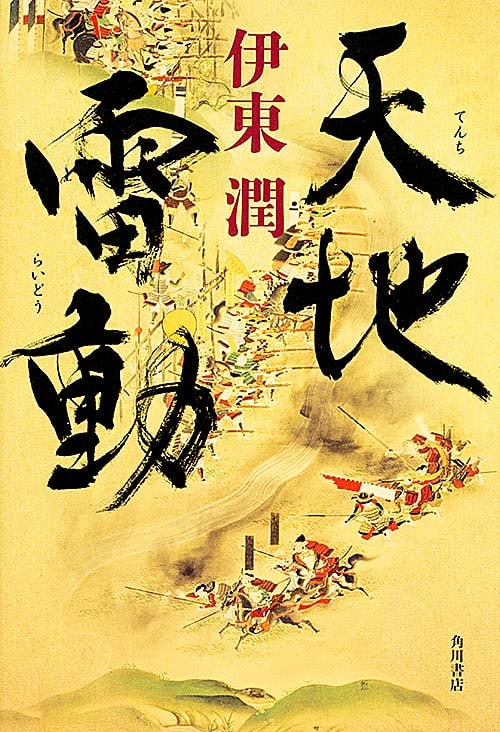 天地
てんち
伊東 潤
雷動
らいどう
角川書店